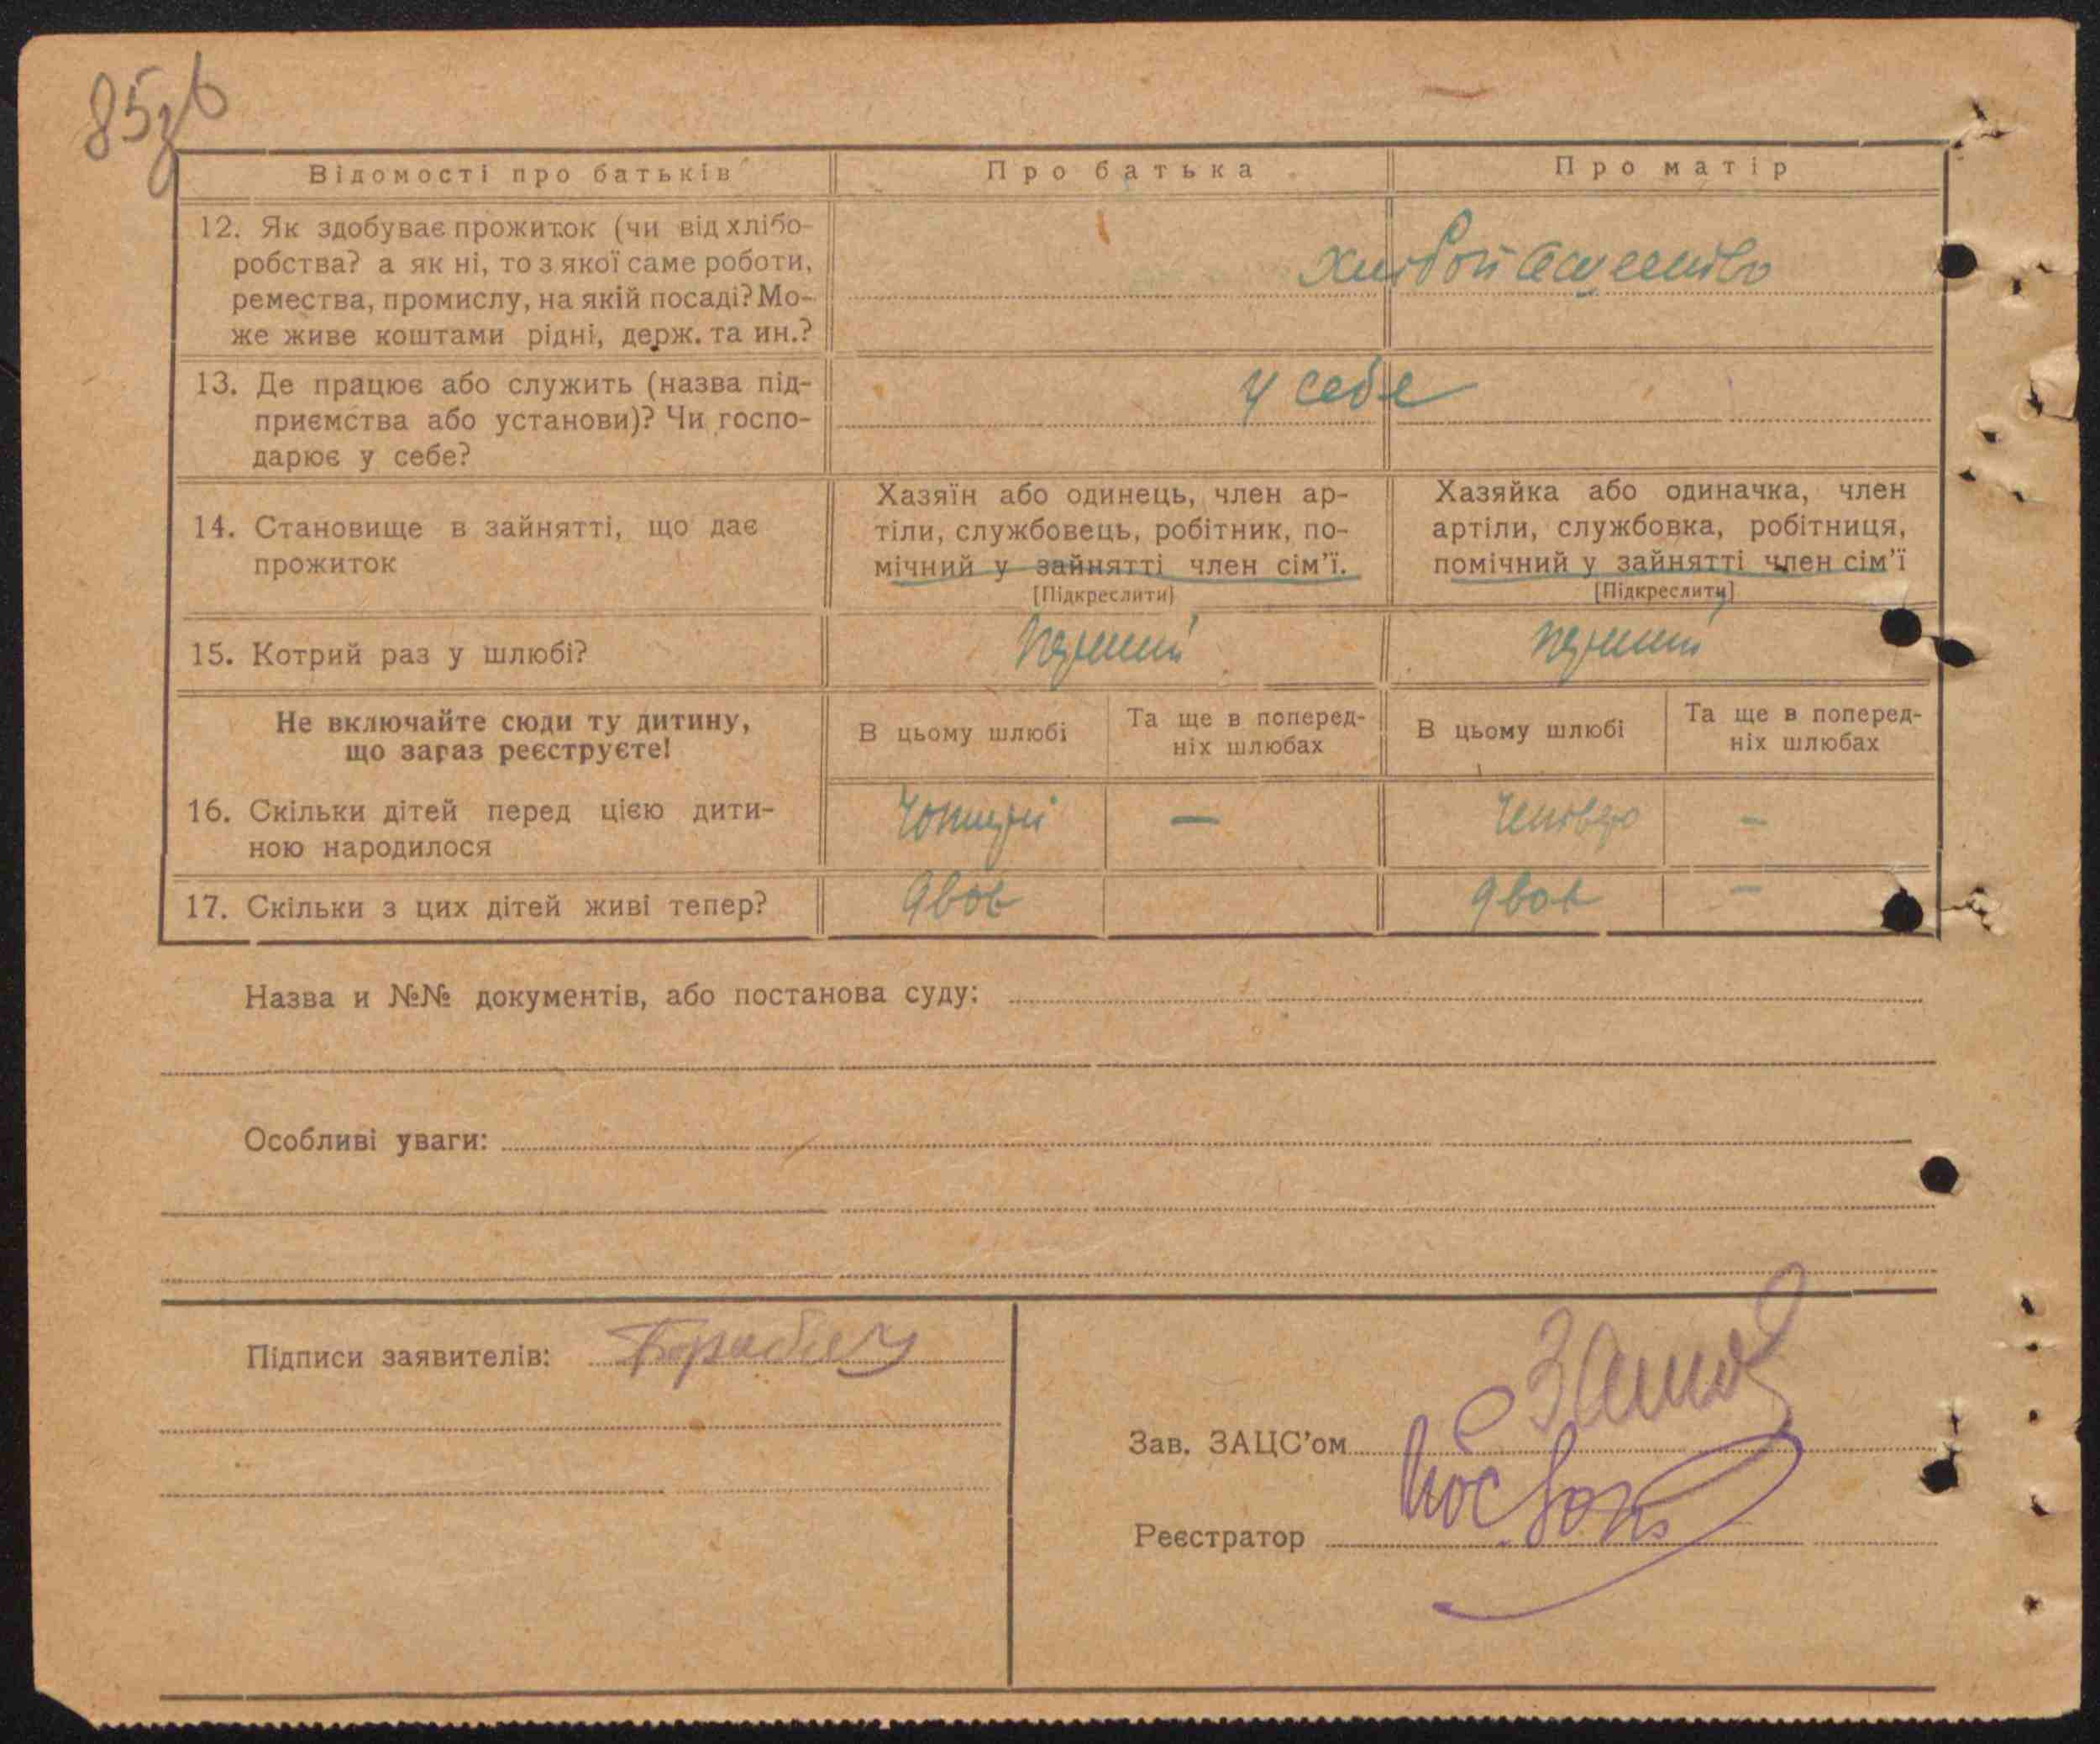 85зв
Відомості про батьків
Про батька
Про матір
12. Як здобуває прожиток (чи від хлібо-
робства? а як ні, то з якої саме роботи,
ремества, промислу, на якій посаді? Мо-
же живе коштами рідні, держ. та ин.?
13. Де працює або служить (назва під-
приємства або установи)? Чи госпо-
дарює у себе?
у себе
14. Становище в зайнятті, що дає
прожиток
Хазяїн або одинець, член ар-
тіли, службовець, робітник, по-
мічний у зайнятті член сім'ї.
[Підкреслити]
Хазяйка або одиначка, член
артіли, службовка, робітниця,
помічний у зайнятті член сім'ї
[Підкреслити]
15. Котрий раз у шлюбі?
перший
перший
Не включайте сюди ту дитину,
що зараз реєструєте!
В цьому шлюбі
Та ще в поперед-
ніх шлюбах
В цьому шлюбі
Та ще в поперед-
ніх шлюбах
16. Скільки дітей перед цією дити-
ною народилося
— –
17. Скільки з цих дітей живі тепер?
двоє
двоє –
Назва и №№ документів, або постанова суду:
Особливі уваги:
Підписи заявителів:
Зав. ЗАЦС'ом
Реєстратор